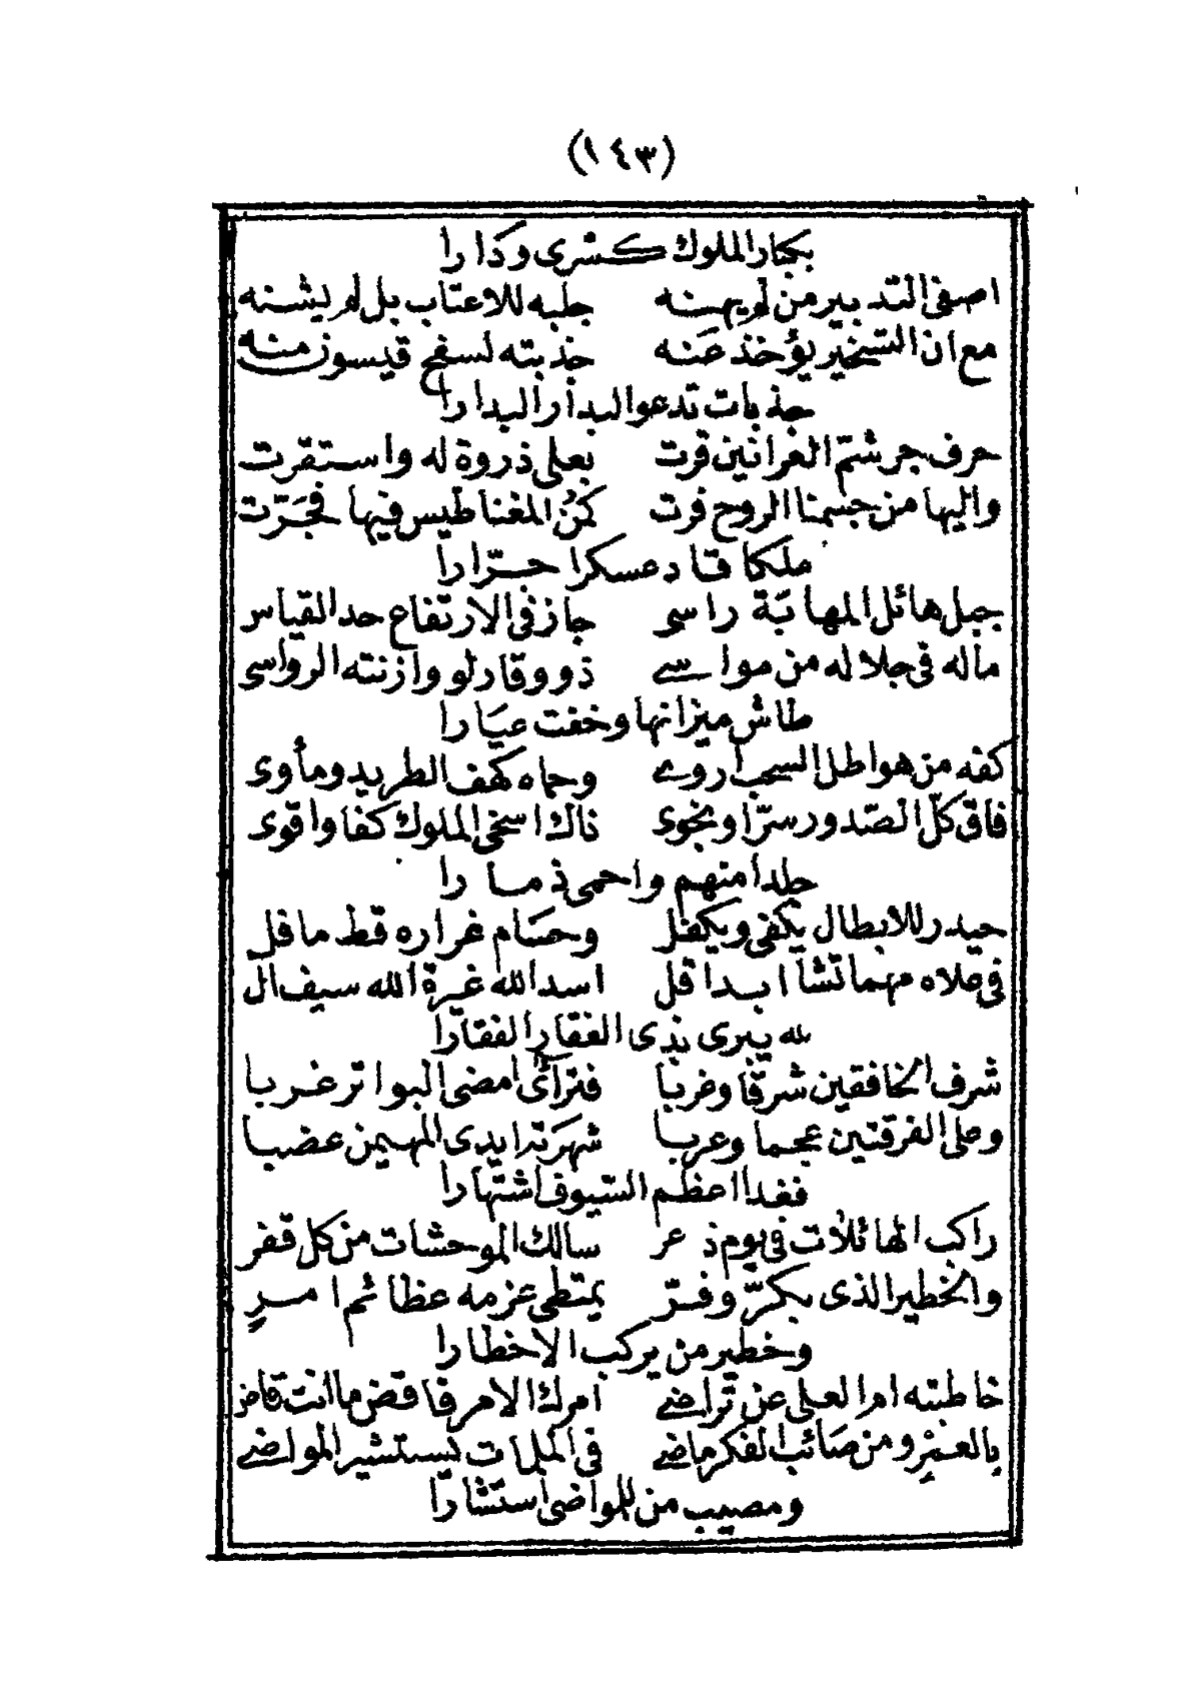 (١٤٣)
بكبار الملوك كسرى ودارا
اصفى التدبير من لم يهنه جلبه للاعتاب بل لم يشنه
مع ان التسخير يؤخذ عنه جذبته لسفح قيسوز منه
جذبات تدعو البدار البدارا
حرف جر شمّ العرانين قرت بعلى ذروة له واستقرت
واليها من جسمنا الروح فرت كمن المغناطيس فيها فجرّت
ملكا قاد عسكرا جرّارا
جبل هائل المهابة راسى جاز فى الارتفاع حد القياس
ماله فى جلاله من مواسى ذو وقار لو وازنته الرواسى
طاش ميزانها وخفت عيارا
كفه من هواطل السحب اروى وحماه كهف الطريد ومأوى
فاق كل الصدور سرّا ونجوى ذاك اسخى الملوك كفا واقوى
جلدا منهم واحمى ذمارا
حيدر للابطال يكفى ويكفل وحسام غراره قط ما فل
فى علاه مهما تشا ابدا قل اسد الله غرة الله سيف ال
لله يبرى بذى الفقار الفقارا
شرف الخافقين شرقا وغربا فترآى امضى البواتر غربا
وعلى الفرقتين عجما وعربا شهرته ايدى المهيمن عضبا
فغدا اعظم السيوف اشتهارا
راكب الهائلات فى يوم ذعر سالك الموحشات من كل قفر
والخطير الذى بكرّ وفرّ يمتطى عزمه عظائم امر
وخطير من يركب الاخطارا
خاطبته ام العلى عن تراضى امرك الامر فاقض ما انت قاض
بالعز ومن صائب الفكر ماضى فى الملمات يستشير المواضى
ومصيب من للمواضى استشارا